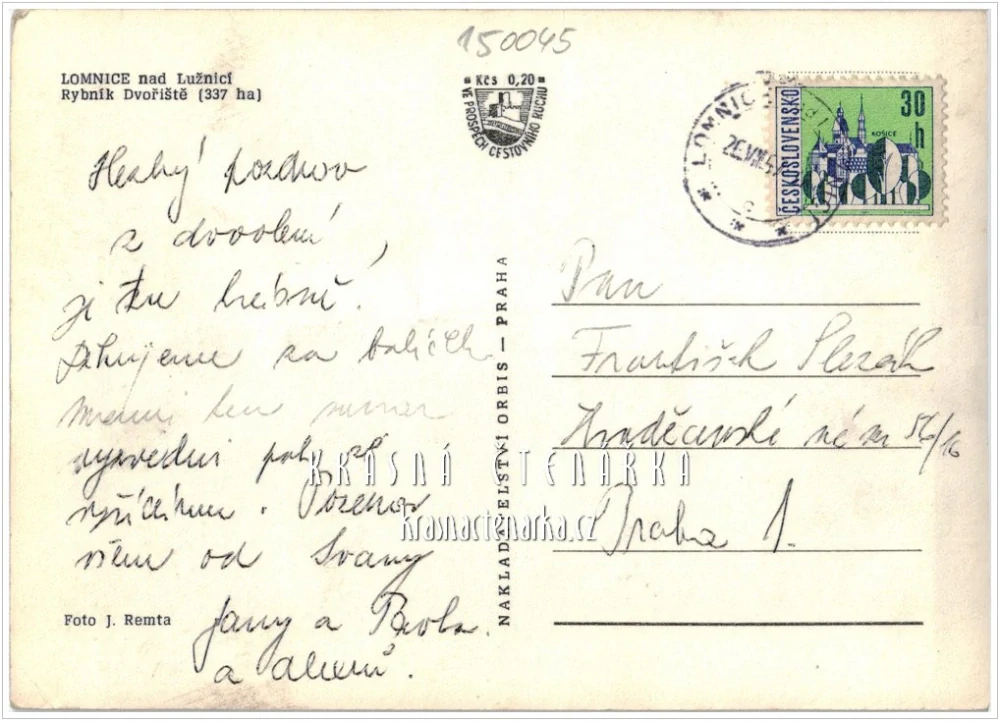 150045
LOMNICE nad Lužnicí
Rybník Dvořiště (337 ha)
Kčs 0,20
VE PROSPĚCH CESTOVNÍHO RUCHU
LOMNICE
ČESKOSLOVENSKO
30
h
KOŠICE
Hezký pozdrav
z dovolení,
je tu krásně.
Děkujeme za balíček
ten
vyzvedni
vyřídíme. Pozdrav
všem od Ivany
Jany a Pavla
a
Pan
František Slezák
Hradčanské nám 56/16
Praha 1.
NAKLADATELSTVÍ ORBIS — PRAHA
KRÁSNÁ ČTENÁRKA
krasnactenarka.cz
Foto J. Remta